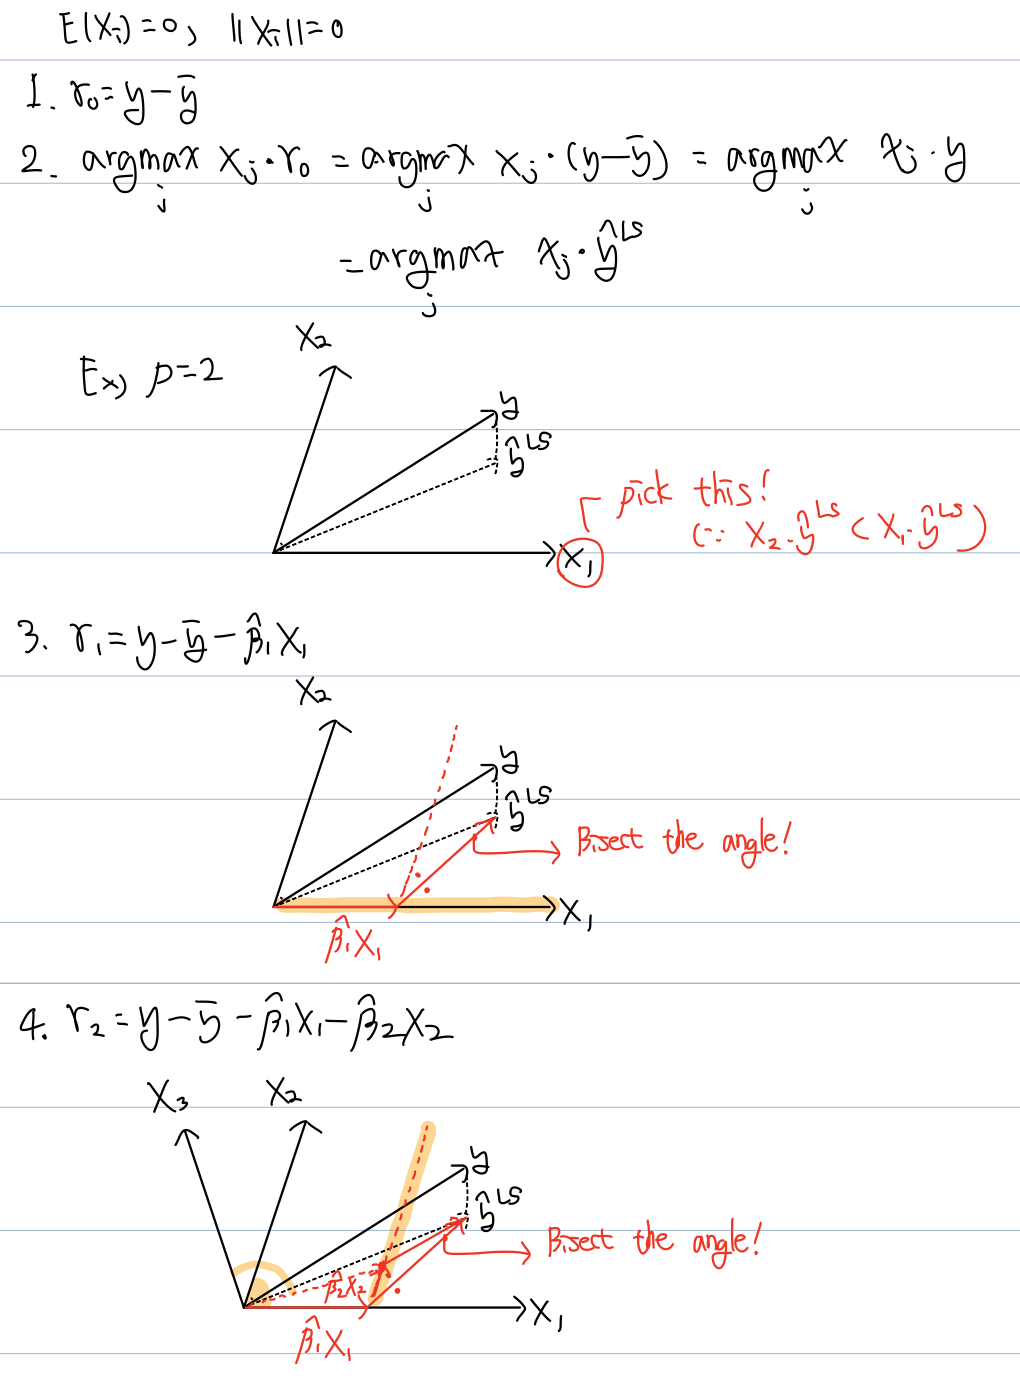 E(Xᵢ)=0, ||Xᵢ||=0
1. r₀=y-ȳ
2. argmax_j X_j·r₀ = argmax_j X_j·(y-ȳ) = argmax_j x_j·y
=argmax_j x_j·ŷ^LS
Ex) p=2
X₂
y
ŷ^LS
pick this!
(∵ X₂·ŷ^LS < X₁·ŷ^LS)
X₁
3. r₁=y-ȳ-β̂₁X₁
X₂
y
ŷ^LS
Bisect the angle!
X₁
β̂₁X₁
4. r₂=y-ȳ-β̂₁X₁-β̂₂X₂
X₃ X₂
y
ŷ^LS
Bisect the angle!
β̂₂X₂
X₁
β̂₁X₁